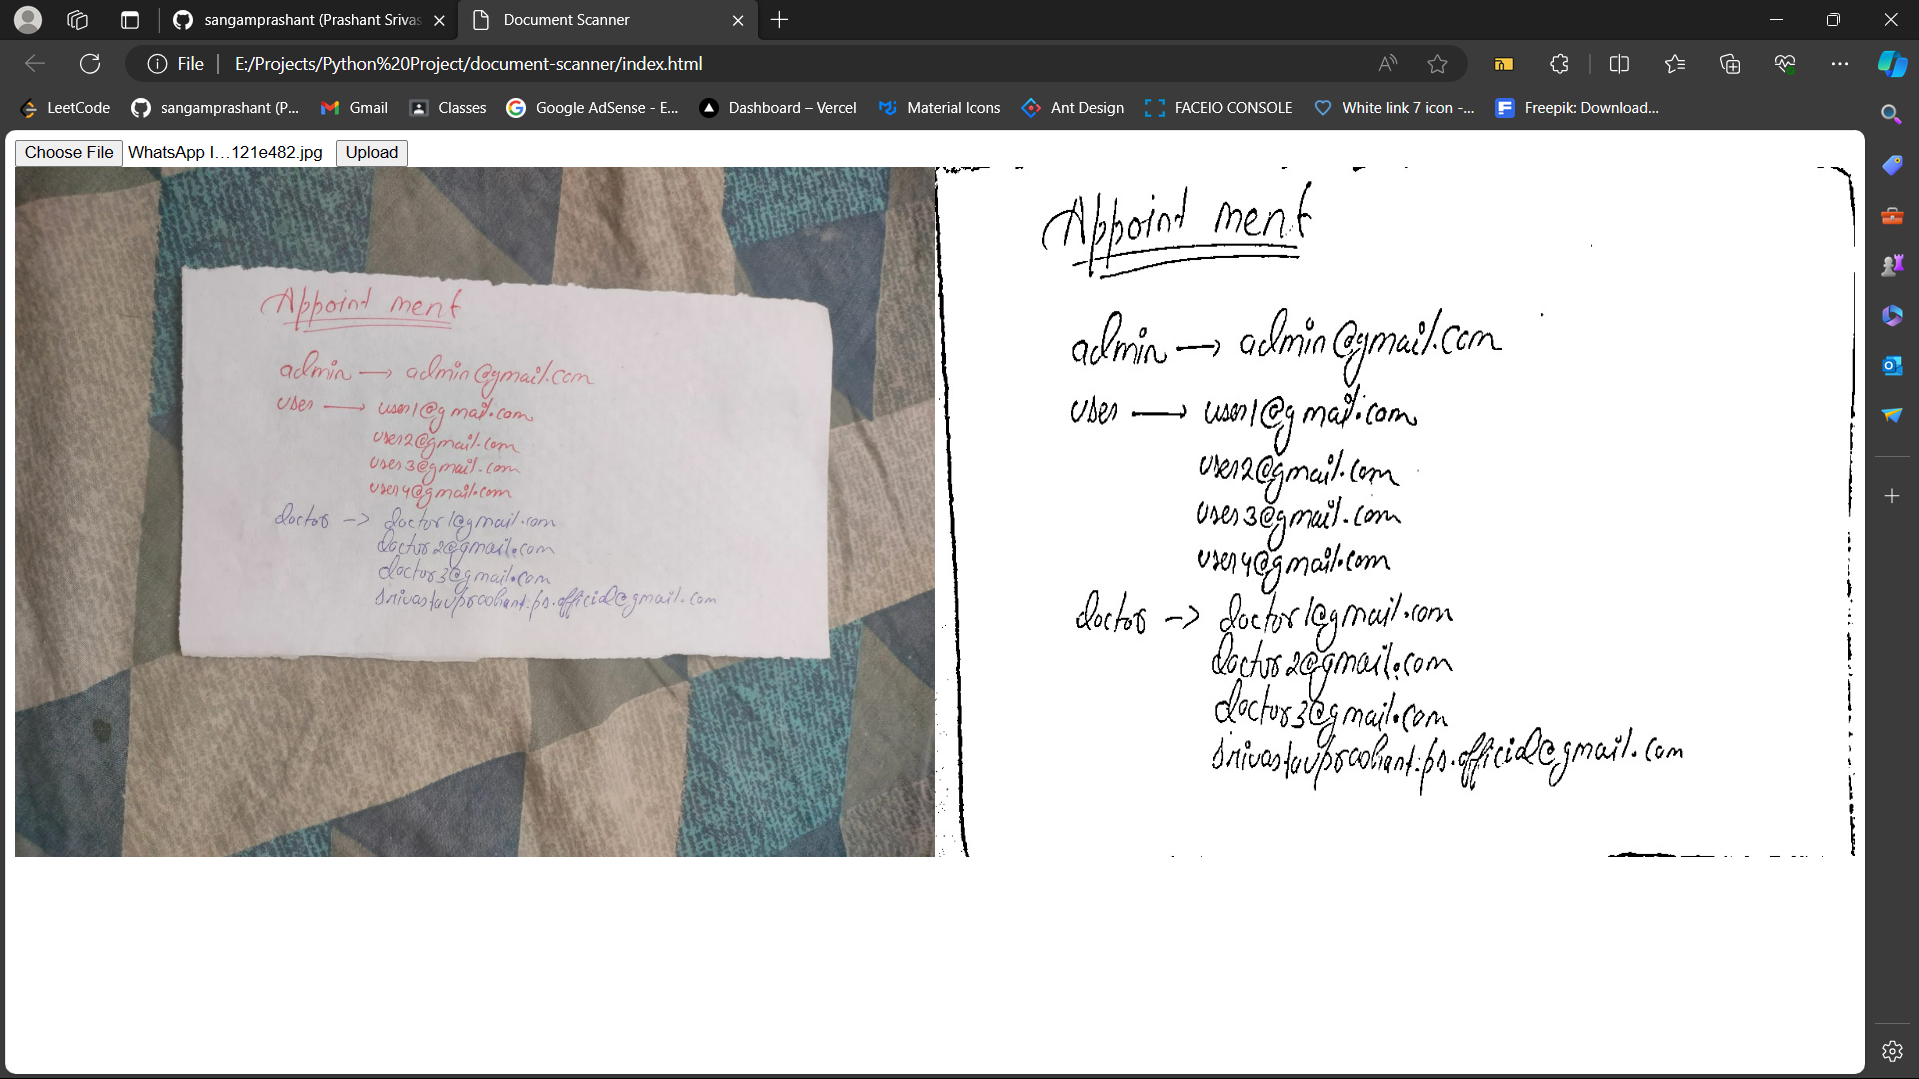 sangamprashant (Prashant Srivas
Document Scanner
File
E:/Projects/Python%20Project/document-scanner/index.html
LeetCode
sangamprashant (P...
Gmail
Classes
Google AdSense - E...
Dashboard – Vercel
Material Icons
Ant Design
FACEIO CONSOLE
White link 7 icon -...
Freepik: Download...
Choose File WhatsApp I...121e482.jpg Upload
Appointment
admin → admin@gmail.com
user → user1@gmail.com
user2@gmail.com
user3@gmail.com
user4@gmail.com
doctor -> doctor1@gmail.com
doctor2@gmail.com
doctor3@gmail.com
srivastavprashant.ps.official@gmail.com
Appointment
admin → admin@gmail.com
user → user1@gmail.com
user2@gmail.com
user3@gmail.com
user4@gmail.com
doctor -> doctor1@gmail.com
doctor2@gmail.com
doctor3@gmail.com
srivastavprashant.ps.official@gmail.com